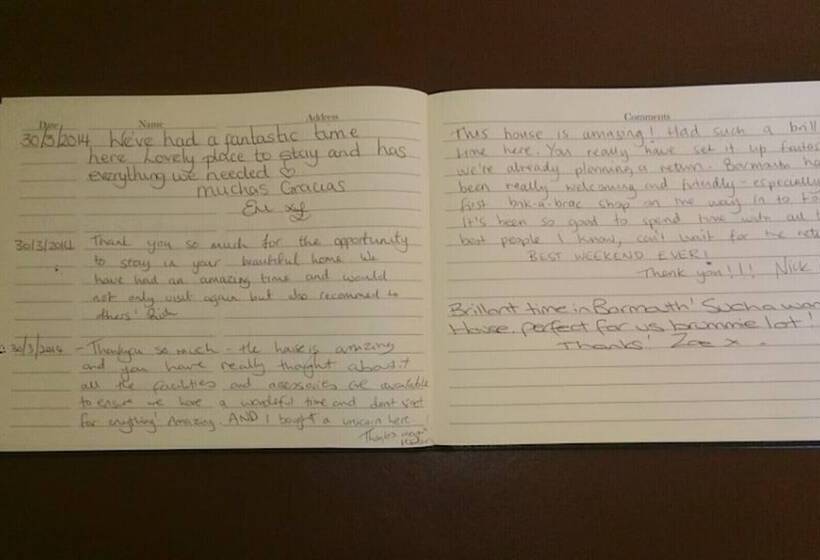 Date Name Address
30/3/2014 We've had a fantastic time
here. Lovely place to stay and has
everything we needed ♡
muchas Gracias
30/3/2014 Thank you so much for the opportunity
to stay in your beautiful home. We
have had an amazing time and would
not only visit again but also recommend to
others!
30/3/2014 - Thankyou so much - the house is amazing
and you have really thought about it
all the facilities and accessories are available
to ensure we have a wonderful time and dont
for anything! Amazing. AND I bought a unicorn here!
Thanks
Comments
This house is amazing! Had such a brill
time here. You really have set it up
we're already planning a return. Barmouth
been really welcoming and friendly - especially
first brik-a-brac shop on the way in to
It's been so good to spend time with all
best people I know, can't wait for the
BEST WEEKEND EVER!
Thank you!!! Nick
Brillant time in Barmouth! Such a
House, perfect for us brummie lot!
Thanks! Zoe x.